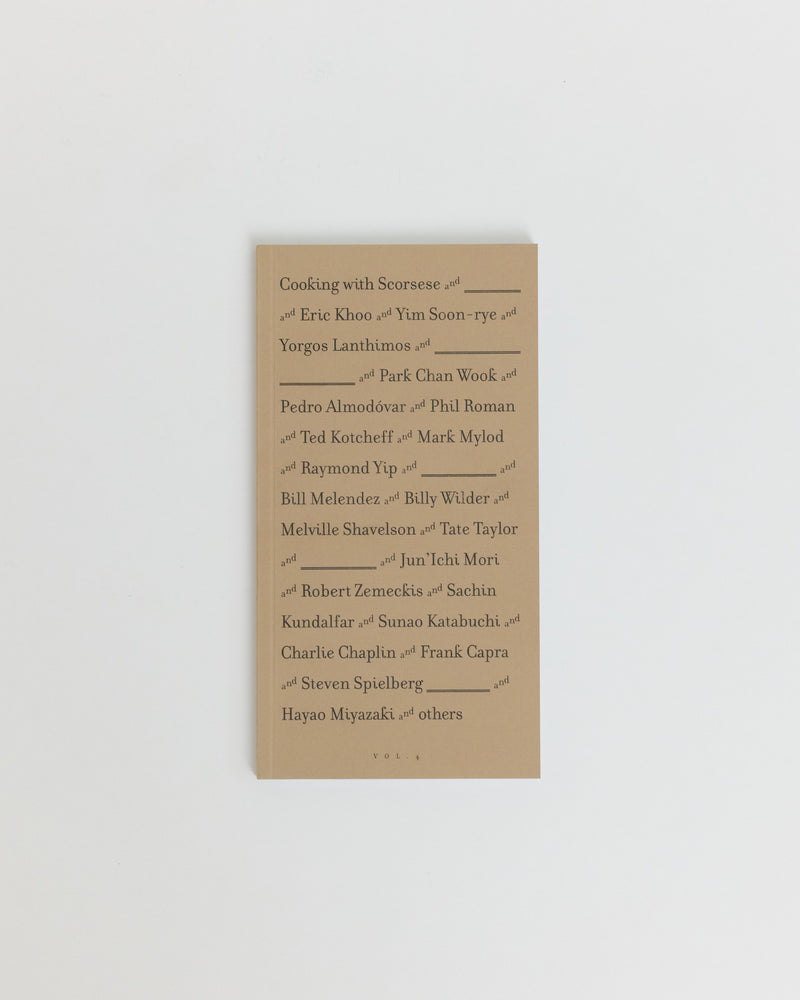 Cooking with Scorsese and ______
and Eric Khoo and Yim Soon-rye and
Yorgos Lanthimos and ______
______ and Park Chan Wook and
Pedro Almodóvar and Phil Roman
and Ted Kotcheff and Mark Mylod
and Raymond Yip and ______ and
Bill Melendez and Billy Wilder and
Melville Shavelson and Tate Taylor
and ______ and Jun'Ichi Mori
and Robert Zemeckis and Sachin
Kundalfar and Sunao Katabuchi and
Charlie Chaplin and Frank Capra
and Steven Spielberg ______ and
Hayao Miyazaki and others
VOL. 4